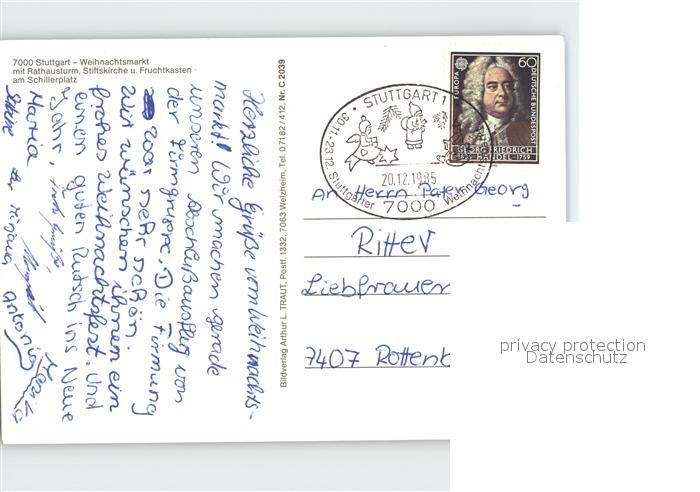 7000 Stuttgart – Weihnachtsmarkt
mit Rathausturm, Stiftskirche u. Fruchtkasten
am Schillerplatz
Herzliche Grüße vom Weihnachts-
markt! Wir machen gerade
unseren Abschlußausflug von
der Firmgruppe. Die Firmung
war sehr schön.
Wir wünschen ihnen ein
frohes Weihnachtsfest. Und
einen guten Rutsch ins Neue
Jahr,
Maria
Antonia
Bildverlag Arthur L. TRAUT, Postf. 1332, 7063 Welzheim, Tel. 07182/412, Nr. C 2039
STUTTGART 1
30.11.-23.12. Stuttgarter Weihnacht
20.12.1985
7000
EUROPA
60
DEUTSCHE BUNDESPOST
GEORG FRIEDRICH
HÄNDEL · 1759
An Herrn Pater Georg
Ritter
Liebfrauen
7407 Rottenb
privacy protection
Datenschutz